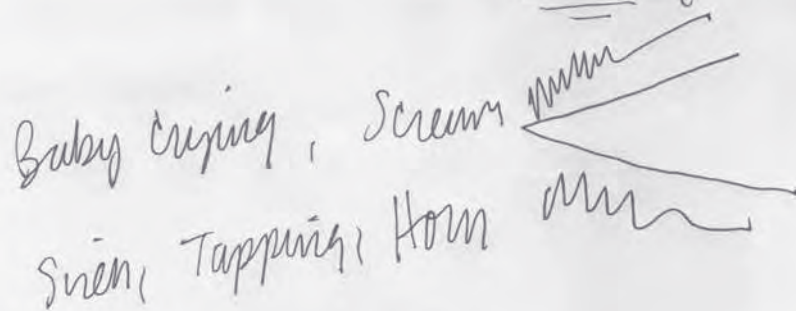 Baby crying, Scream
Siren, Tapping, Horn